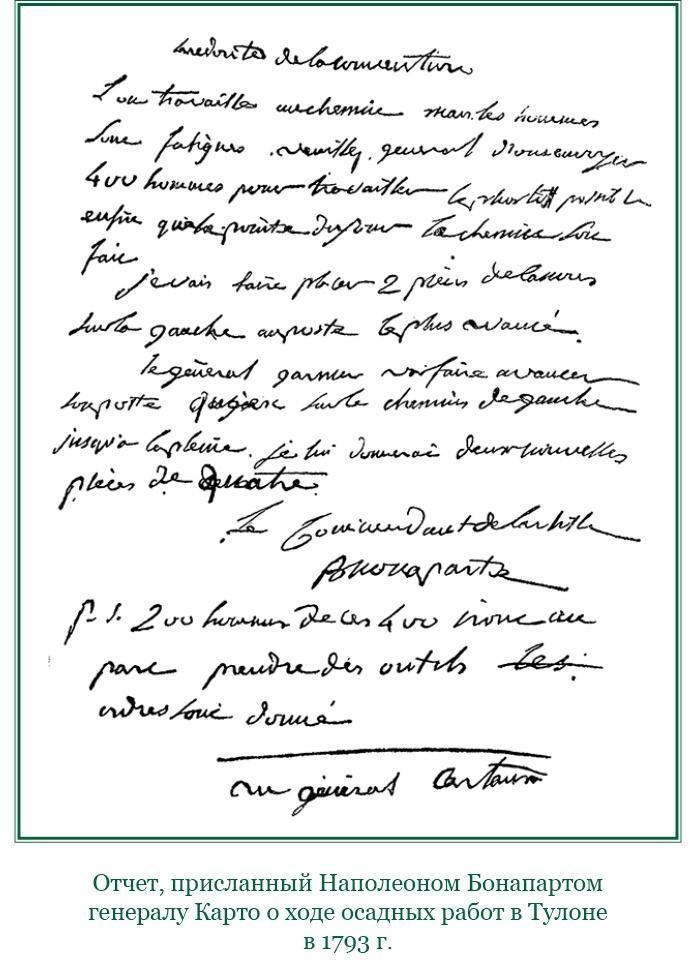 de la convention
L'on travaille au chemin mais les hommes
sont fatigués . veuillez . général nous envoyer
400 hommes pour travailler
enfin qu'a la pointe du jour le chemin soit
fait
je vais faire placer 2 pièces
sur la gauche au poste le plus avancé.
le général garnier va faire avancer
son poste sur le chemin de gauche
jusqu'a la pleine. je lui donnerai deux nouvelles
pièces de quatre.
Le Commandant de l'artill
Buonaparte
p. s. 200 hommes de ces 400 iront au
parc prendre des outils les
ordres sont donné
au général Cartaux
Отчет, присланный Наполеоном Бонапартом
генералу Карто о ходе осадных работ в Тулоне
в 1793 г.